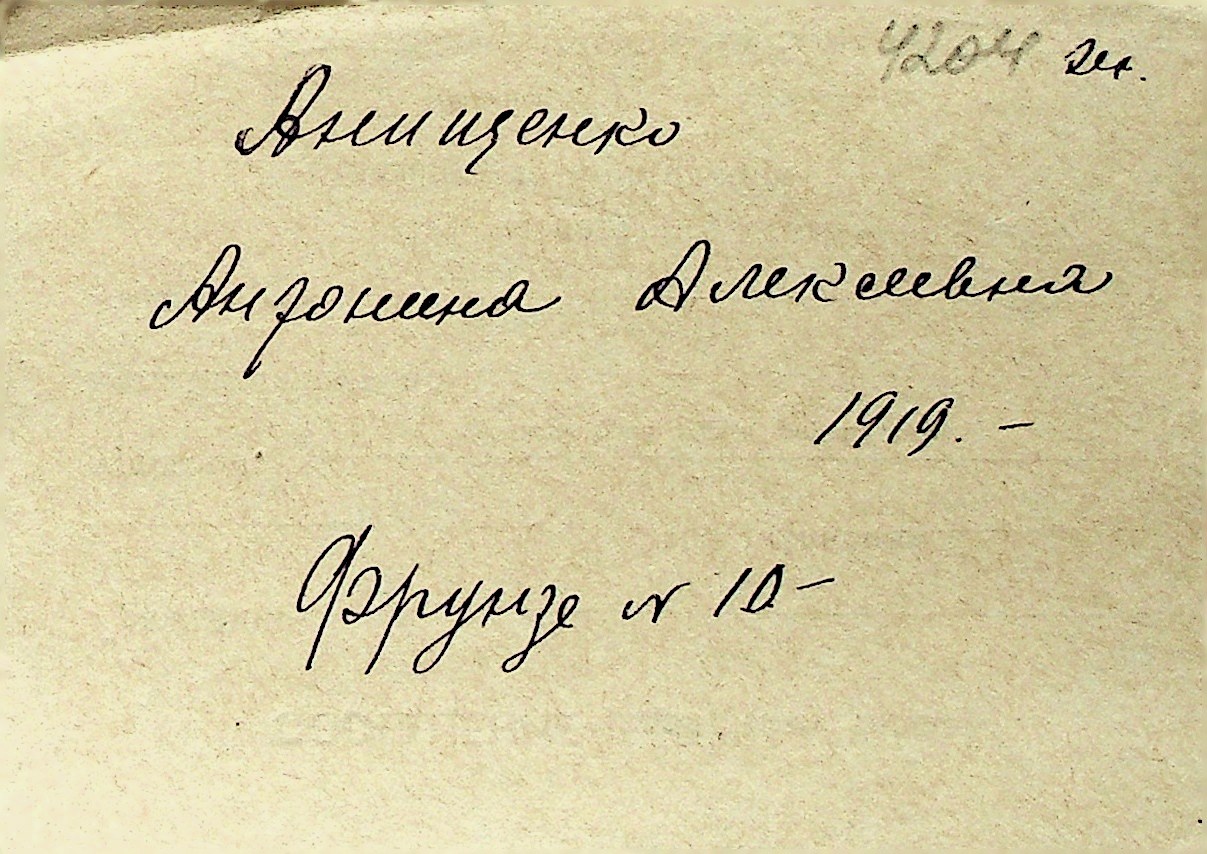 4204
Анищенко
Антонина Алексеевна
1919. –
Фрунзе № 10 –